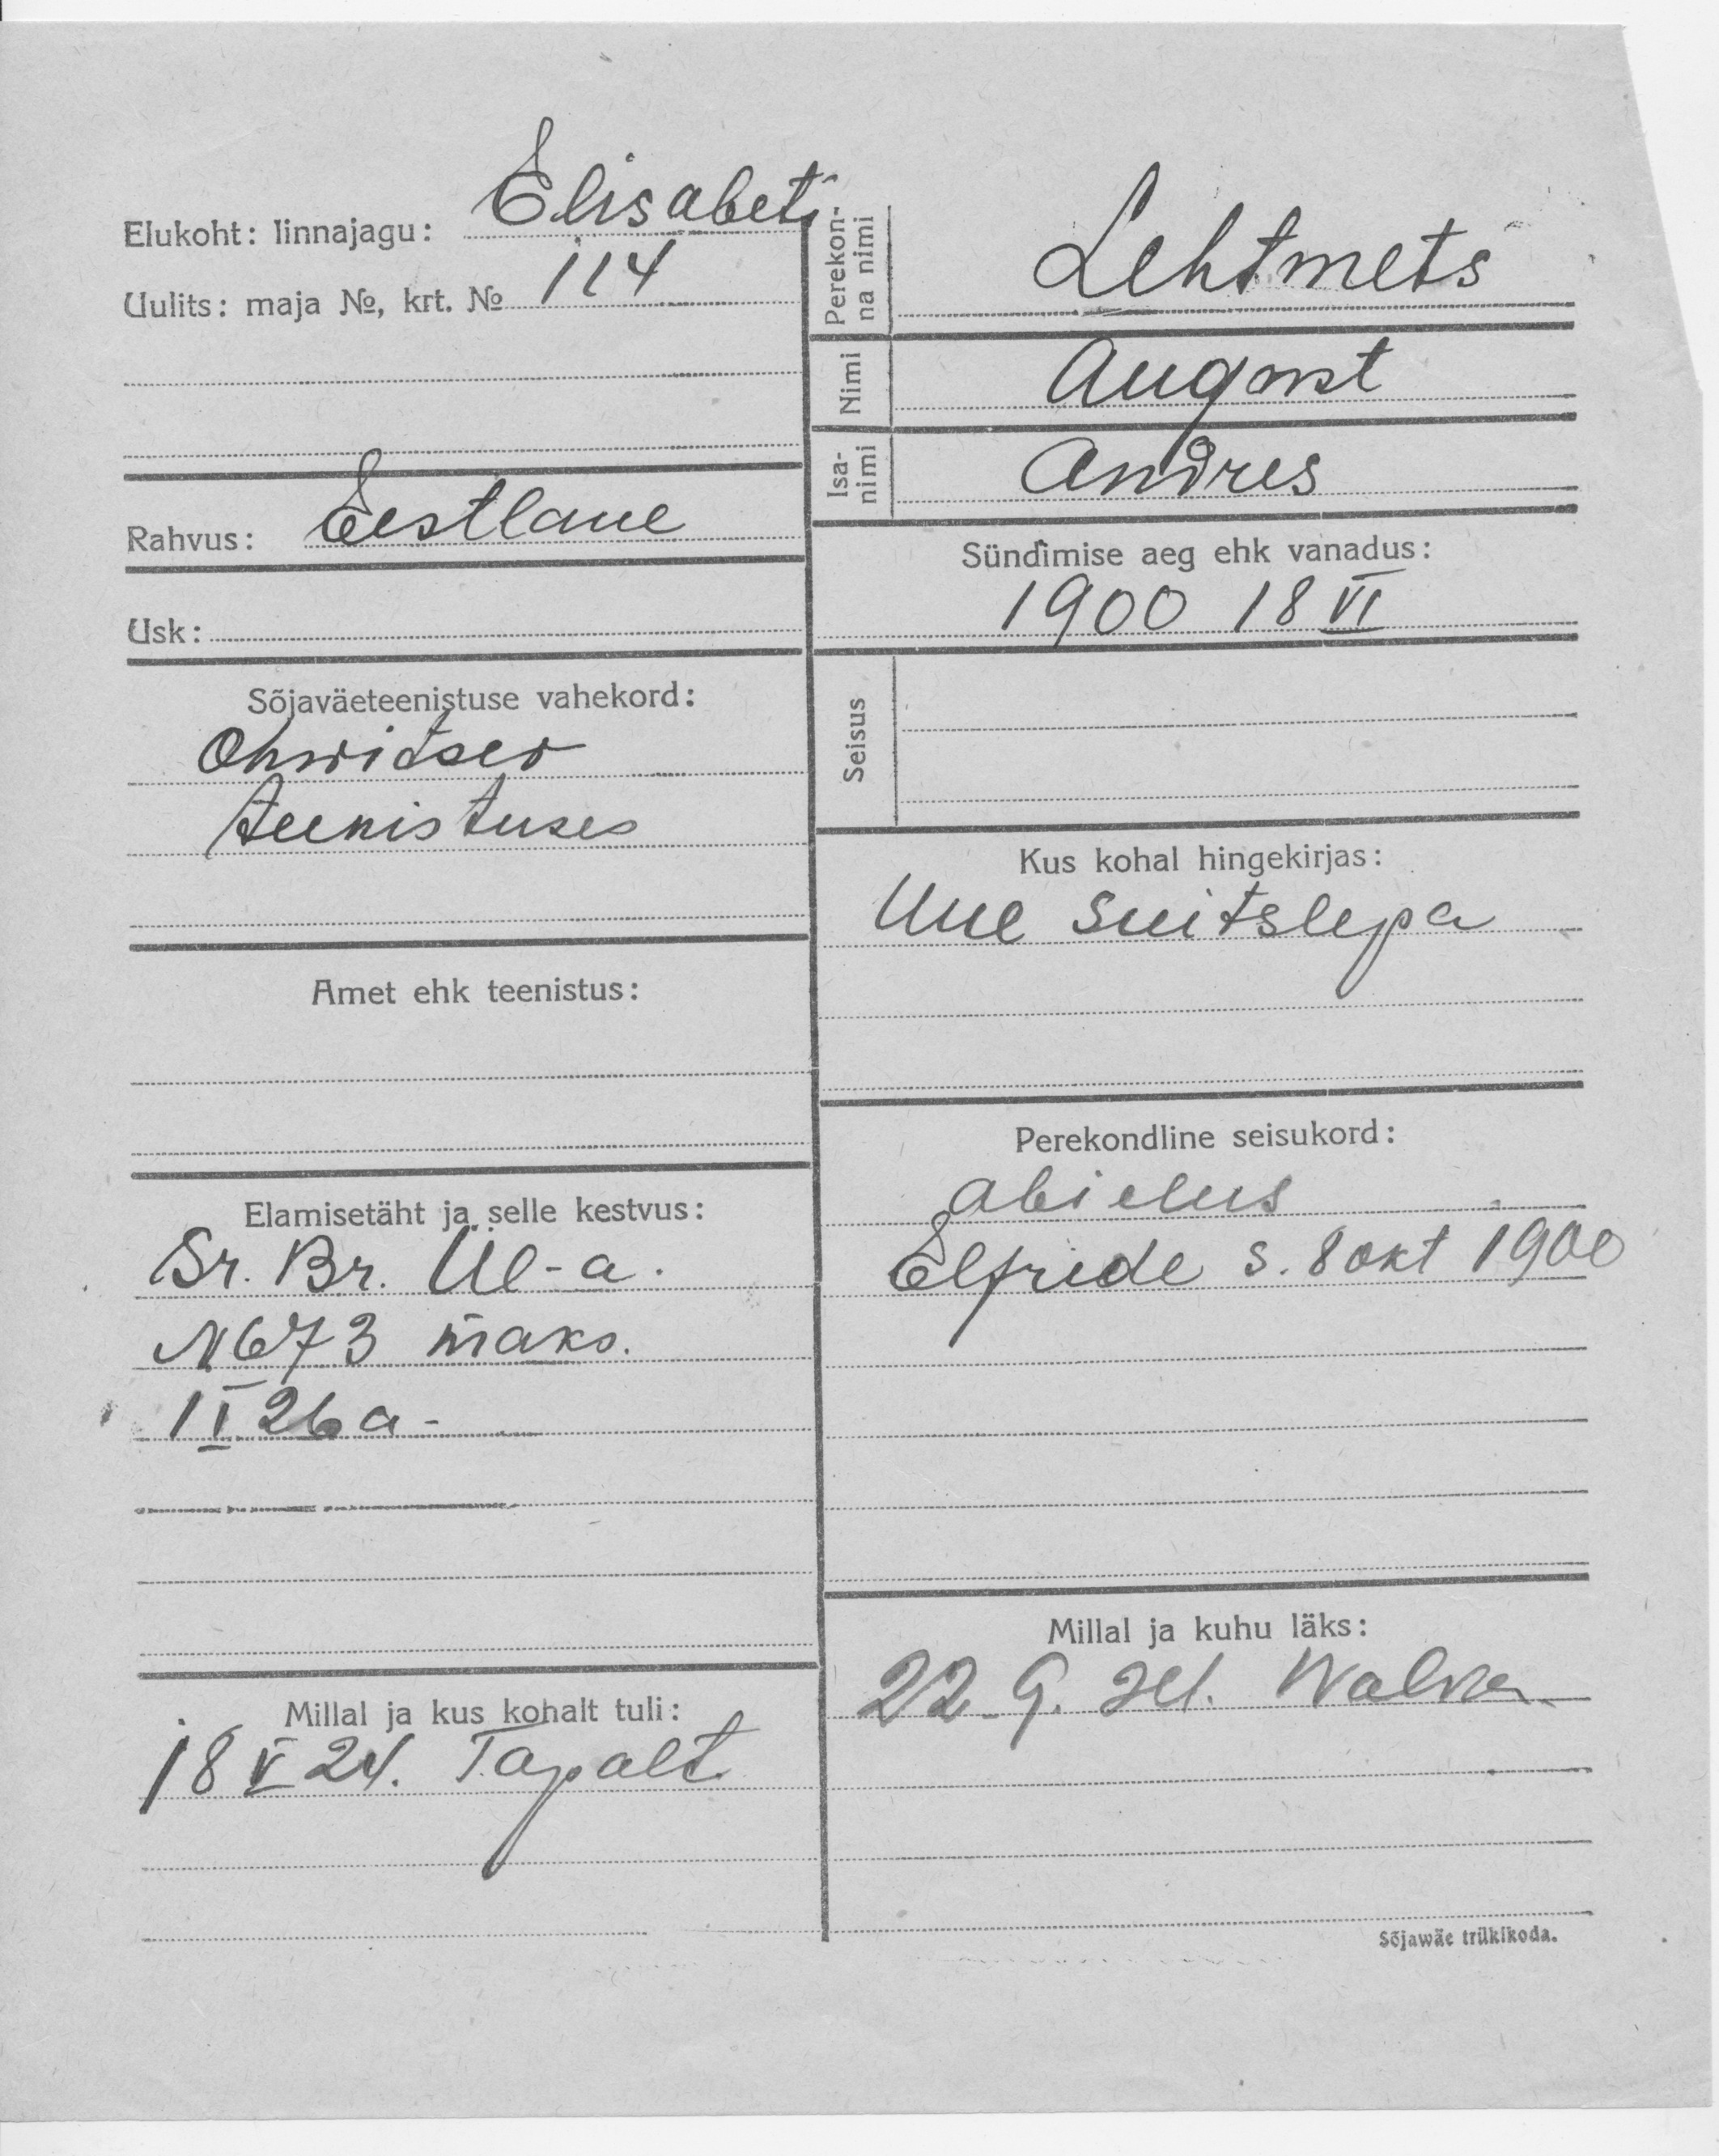 Elukoht: linnajagu: Elisabeti
Uulits: maja №, krt. № 114
Rahvus: Eestlane
Usk:
Sõjaväeteenistuse vahekord:
Ohwitser
teenistuses
Amet ehk teenistus:
Elamisetäht ja selle kestvus:
Sr. Br. Ül-a.
N 673 maks.
1 I 26 a-
Millal ja kus kohalt tuli:
18 V 24. Tapalt
Perekon-
na nimi
Lehtmets
Nimi
August
Isa-
nimi
Andres
Sündimise aeg ehk vanadus:
1900 18 VI
Seisus
Kus kohal hingekirjas:
Uue Suitslepa
Perekondline seisukord:
abielus
Elfride s. 8 okt 1900
Millal ja kuhu läks:
22. 9. 24. Walka
Sõjawäe trükikoda.